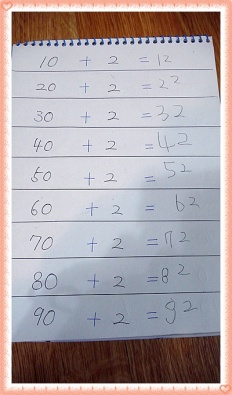 10 + 2 = 12
20 + 2 = 22
30 + 2 = 32
40 + 2 = 42
50 + 2 = 52
60 + 2 = 62
70 + 2 = 72
80 + 2 = 82
90 + 2 = 92